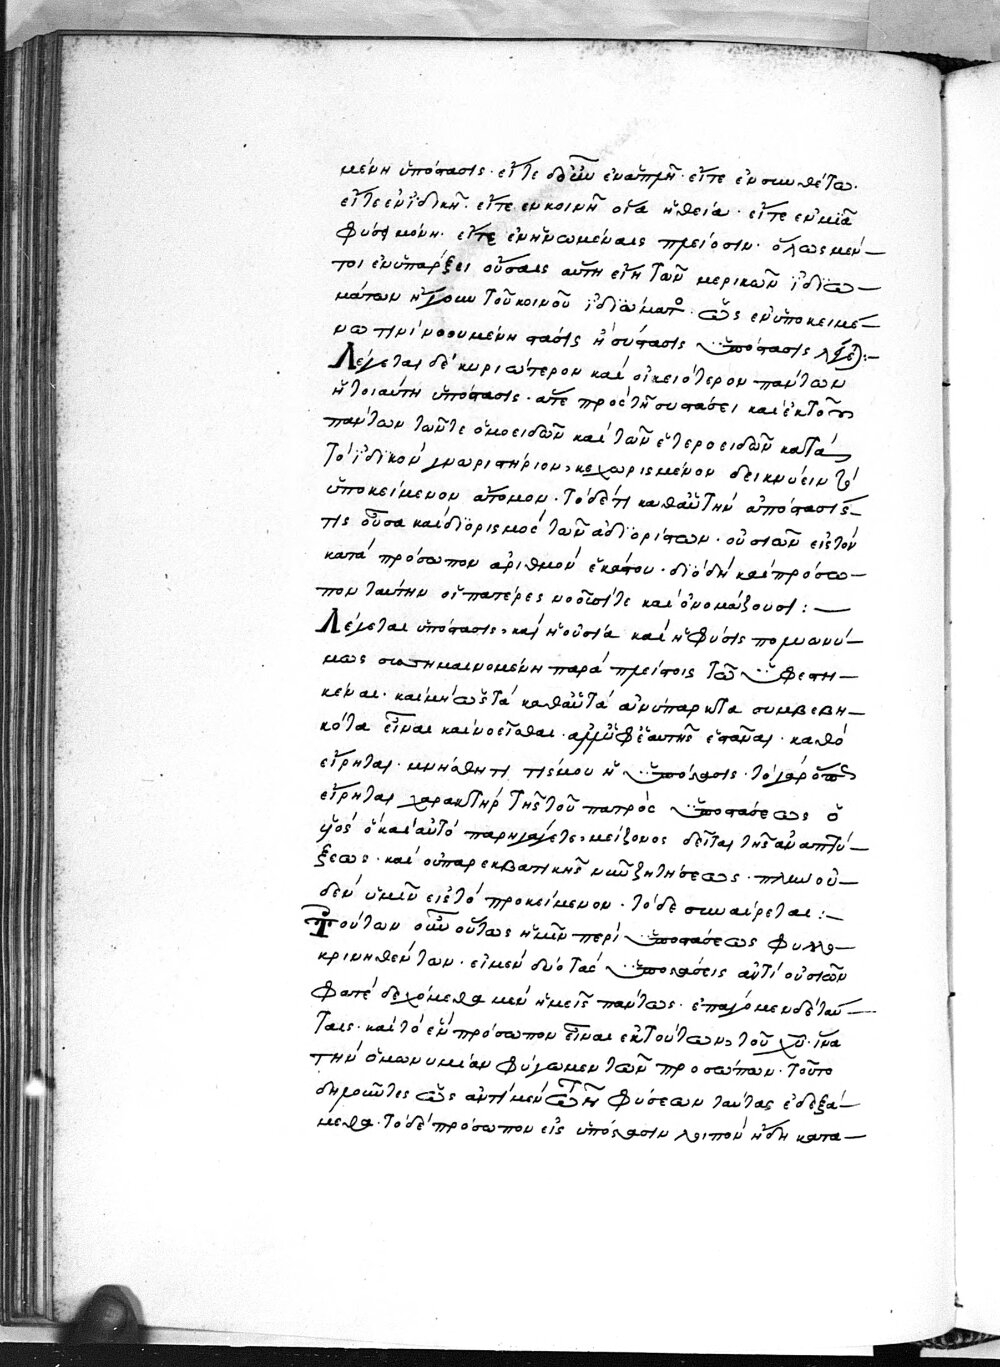 μένη ὑπόστασις· εἴτε οὖν ἐν ἁπλῇ· εἴτε ἐν συνθέτω·
εἴτε ἐν ἰδικῇ· εἴτε ἐν κοινῇ οἵα ἡ θεία· εἴτε ἐν μιᾶ
φύσει μόνη· εἴτε ἐν ἡνωμέναις πλείοσιν· ὅλως μέν-
τοι ἐν ὑπάρξει οὔσαις αὐτὴ εἴη τῶν μερικῶν ἰδιω-
μάτων ἤγουν τοῦ κοινοῦ ἰδιώματος· ὡς ἐν ὑποκειμέ-
νω τινὶ νοουμένη στάσις ἢ σύστασις ὑπόστασις
Λέγεται δὲ κυριώτερον καὶ οἰκειότερον πάντων
ἡ τοιαύτη ὑπόστασις· ἅτε πρὸς τῇ συστάσει καὶ ἐκ τῶν
πάντων τῶν τε ὁμοειδῶν καὶ τῶν ἑτεροειδῶν κατὰ
τὸ ἰδικὸν γνωριστήριον, κεχωρισμένον δεικνύειν τὸ
ὑποκείμενον ἄτομον· τὸ δέ τι καθ' αὑτὴν ἀπόστασίς
τις οὖσα καὶ διορισμὸς τῶν ἀδιορίστων· οὐσιῶν εἰς τὸν
κατὰ πρόσωπον ἀριθμὸν ἑκάστου· διὸ δὴ καὶ πρόσω-
πον ταύτην οἱ πατέρες νοοῦσί τε καὶ ὀνομάζουσι:
Λέγεται ὑπόστασις, καὶ ἡ οὐσία καὶ ἡ φύσις πολυωνύ-
μως σημαινομένη παρὰ πλείστοις τῶ ὑφεστη-
κέναι· καὶ μὴ ὡς τὰ καθ' αὑτὰ ἀνύπαρκτα συμβεβη-
κότα εἶναι καὶ νοεῖσθαι· ἀλλ' ὑφ' ἑαυτῆς ἑστάναι· καθὸ
εἴρηται· μνήσθητι τίς μου ἡ ὑπόστασις· τὸ γὰρ ὅπως
εἴρηται χαρακτὴρ τῆς τοῦ πατρὸς ὑποστάσεως ὁ
υἱὸς ὃ καὶ αὐτὸ παρηγάγετε, μείζονος δεῖται τῆς ἀναπτύ-
ξεως· καὶ οὐ παρεκβατικῆς νῦν ζητήσεως· πλὴν οὐ-
δὲν ὑμῖν εἰς τὸ προκείμενον· τόδε συναίρεται:-
Τούτων οὖν οὕτως ἡμῖν περὶ ὑποστάσεως φυλλο-
κρινηθέντων· εἰ μὲν δύο τὰς ὑποστάσεις ἀντὶ οὐσιῶν
φατὲ δεχόμεθα μὲν ἡμεῖς πάντως· ἐπάγομεν δὲ ταύ-
ταις· καὶ τὸ ἓν πρόσωπον εἶναι ἐκ τούτων, τοῦ χυ· ἵνα
τὴν ὁμωνυμίαν φύγωμεν τῶν προσώπων· τοῦτο
δηλοῦντες ὡς ἀντὶ μὲν τῶν φύσεων ταύτας ἐδεξά-
μεθα· τὸ δὲ πρόσωπον εἰς ὑπόστασιν λοιπὸν ἤδη κατα-